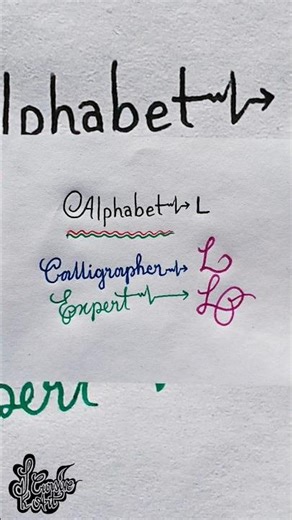 lphabet
Alphabet L
Calligrapher L
Expert L
pert